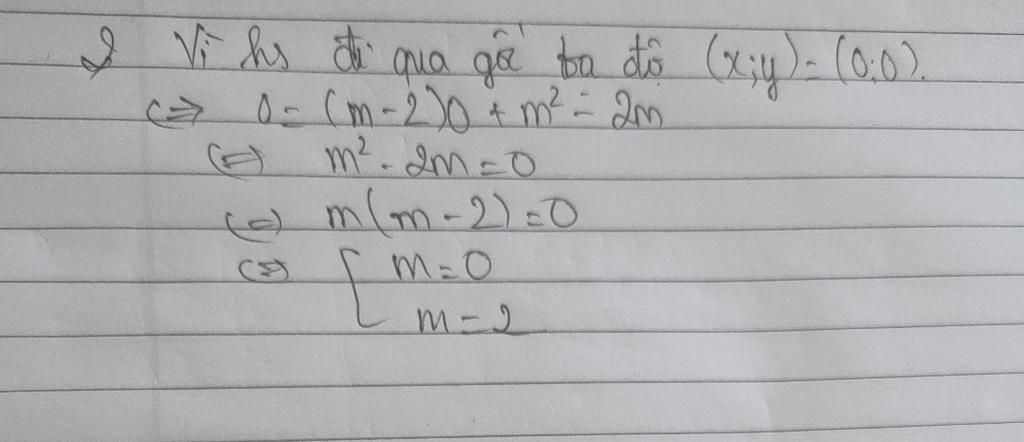 2 Vì hs đi qua gốc tọa độ (x;y) = (0;0).
<=> 0 = (m-2)0 + m² - 2m
<=> m² - 2m = 0
<=> m(m-2) = 0
<=> [ m = 0
m = 2